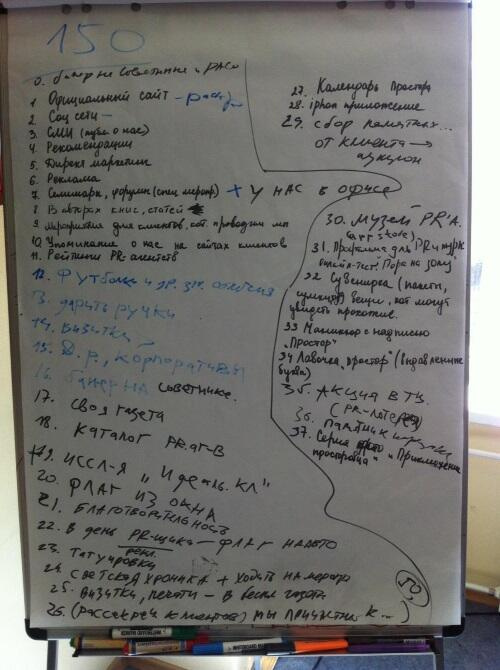 150
0. банер на Советнике и РАСО
1 Официальный сайт -
2 Соц сети -
3 СМИ (публ о нас)
4 Рекомендации
5. Директ маркетинг
6 Реклама
7 Семинары, форумы (спец меропр) + У НАС в офисе
8 Авторах книг, статей
9 мероприятие для клиентов, кот. проводим мы
10 Упоминание о нас на сайтах клиентов
11. Рейтинги PR-агентств
12. Футболки и др. эл. отличия
13. дарить ручки
14. Визитки
15. Д.р., корпоративы
16. банер на советнике.
17. Своя газета
18. Каталог PR.аг-в
19. ИССЛ-Я "Идеаль. кл"
20. ФЛАГ ИЗ ОКНА
21. БЛАГОТВОРИТЕЛЬНОСТЬ
22. В день PR-щика - ФЛАГ НА АВТО
23. рекл. Татуировки
24. СВЕТСКАЯ ХРОНИКА + ходить на меропр
25. Визитки, печати - в виде
26. (рассекреч клиентов) МЫ ПРИЧАСТНЫ К...)
27. Календарь Простора
28. iphon приложение
29. сбор памятных...
от клиента →
аукцион
30. Музей PR'а.
(art store)
31. Программа для PR-щик
онлайн-тест "Пора на
32 Сувенирка (пакеты,
сумки) вещи, кот могут
увидеть прохожие.
33 Маникюр с надписью
"Простор"
34 Лавочка "простор" (выдавленные
буквы)
35. АКЦИЯ В ТЦ.
(PR-лотерея)
36. Памятник
37. Серия "Приключение
простораца"